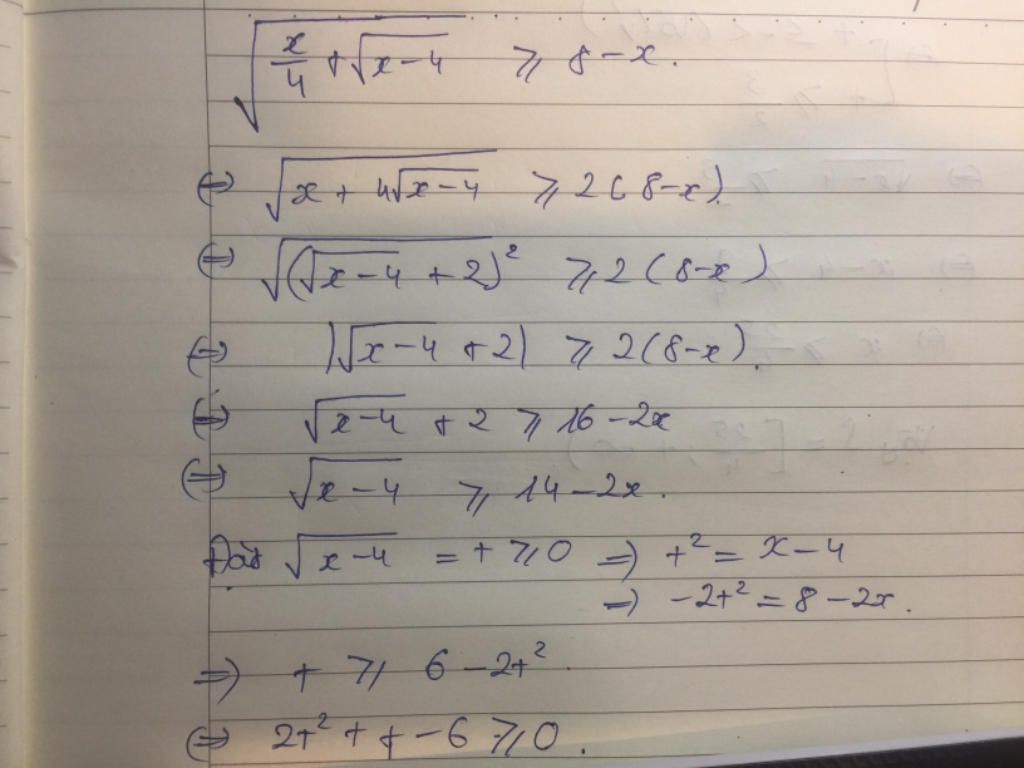 √(x/4 + √(x-4)) ⩾ 8-x.
⇔ √(x + 4√(x-4)) ⩾ 2(8-x).
⇔ √((√(x-4) + 2)²) ⩾ 2(8-x)
⇔ |√(x-4) + 2| ⩾ 2(8-x).
⇔ √(x-4) + 2 ⩾ 16-2x
⇔ √(x-4) ⩾ 14-2x.
Đặt √(x-4) = t ⩾ 0 ⇒ t² = x-4
⇒ -2t² = 8-2x.
⇒ t ⩾ 6-2t².
⇔ 2t² + t - 6 ⩾ 0.